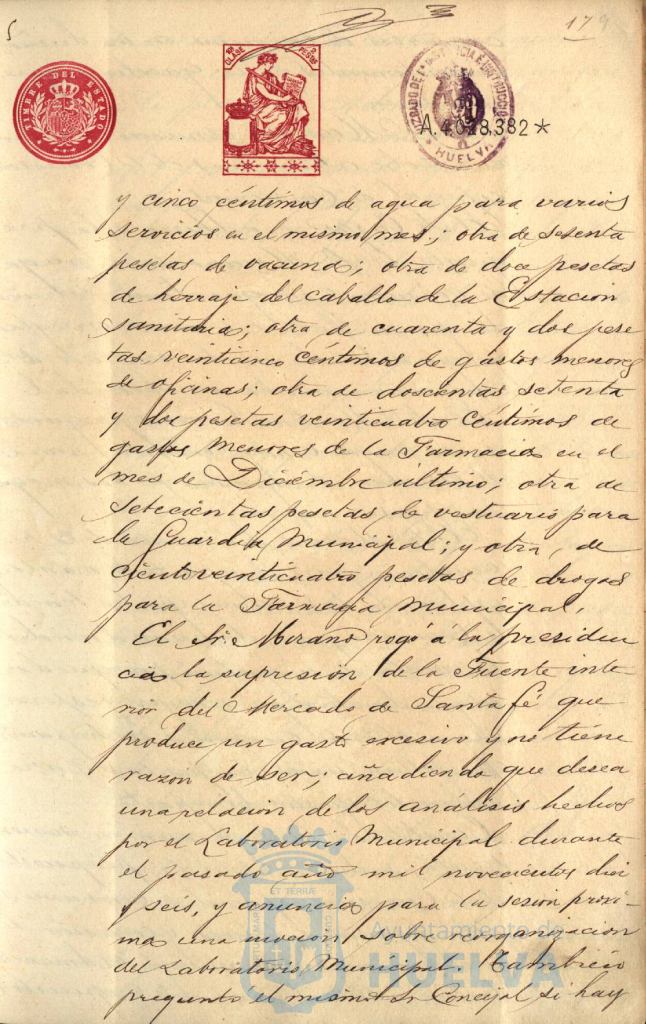 5
179
TIMBRE DEL ESTADO
10ª CLASE 2 PESETAS
JUZGADO DE 1ª INSTANCIA E INSTRUCCION
HUELVA
A.4.028.382*
y cinco céntimos de agua para varios
servicios en el mismo mes; otra de sesenta
pesetas de vacuna; otra de doce pesetas
de herraje del caballo de la Estación
sanitaria; otra de cuarenta y dos pese
tas veinticinco céntimos de gastos menores
de oficinas; otra de doscientas setenta
y dos pesetas veinticuatro céntimos de
gastos menores de la Farmacia en el
mes de Diciembre último; otra de
setecientas pesetas de vestuario para
la Guardia Municipal; y otra, de
ciento veinticuatro pesetas de drogas
para la Farmacia Municipal.
El Sr. Morano rogó á la presiden
cia la supresión de la Fuente inte
rior del Mercado de Santa Fé que
produce un gasto excesivo y no tiene
razón de ser; añadiendo que desea
una relación de los análisis hechos
por el Laboratorio Municipal durante
el pasado año mil novecientos diez
y seis, y anuncia para la sesión próxi-
ma una moción sobre reorganización
del Laboratorio Municipal. También
preguntó el mismo Sr Concejal si hay
Ayuntamiento de
HUELVA